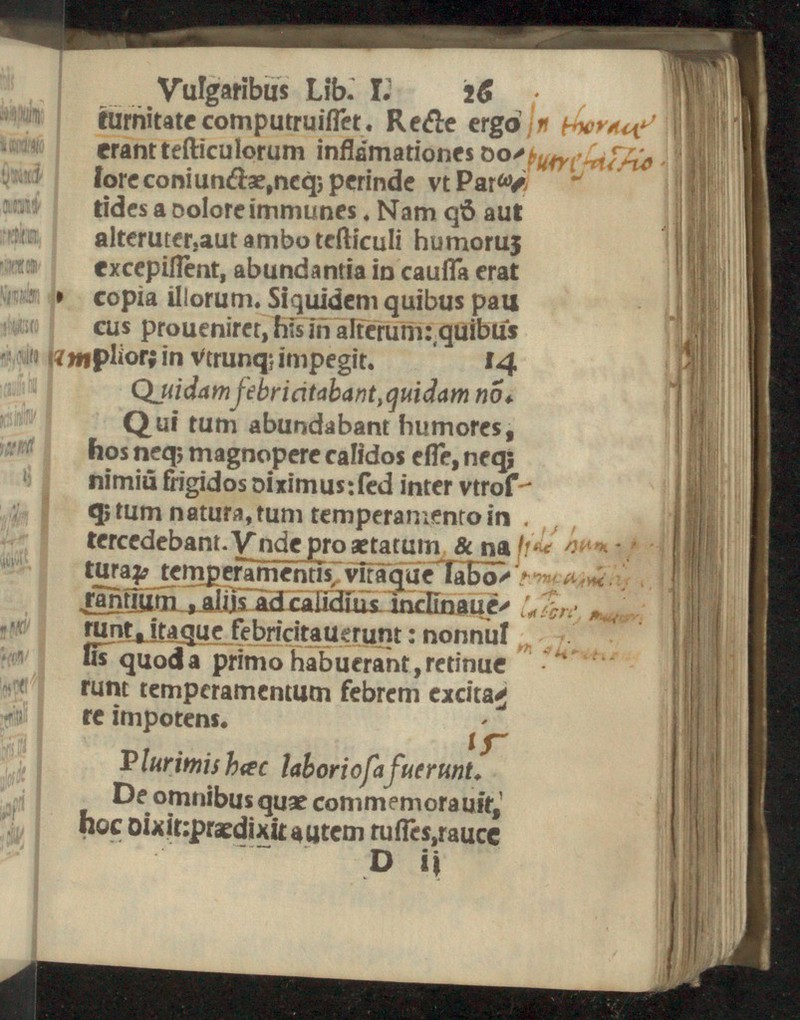 Vulgaribus Lib. I. 26
turnitate computruiſſet. Recte ergo
erant teſticulorum inflámationes do⸗
lore coniunctæ, neq; perinde vt Parω⸗
tides a dolore immunes. Nam qđ aut
alteruter, aut ambo teſticuli humoruꝫ
excepiſſent, abundantia in cauſſa erat
copia illorum. Siquidem quibus pau
cus proueniret, his in alterum: quibus
amplior; in vtrunq; impegit. 14
Quidam febricitabant, quidam nō.
Qui tum abundabant humores,
hos neq; magnopere calidos eſſe, neq;
nimiū frigidos diximus: ſed inter vtroſ-
q; tum natura, tum temperamento in
tercedebant. Vnde pro ætatum, & na
turaꝝ temperamentis, vitaque labo⸗
rantium, alijs ad calidius inclinaue⸗
runt, itaque febricitauerunt: nonnul
lis quod a primo habuerant, retinue
runt temperamentum febrem excita⸗
re impotens.
15
Plurimis hæc laborioſa fuerunt.
De omnibus quæ commemorauit,
hoc dixit: prædixit autem tuſſes, rauce
D ij
in thorace
putrefactio